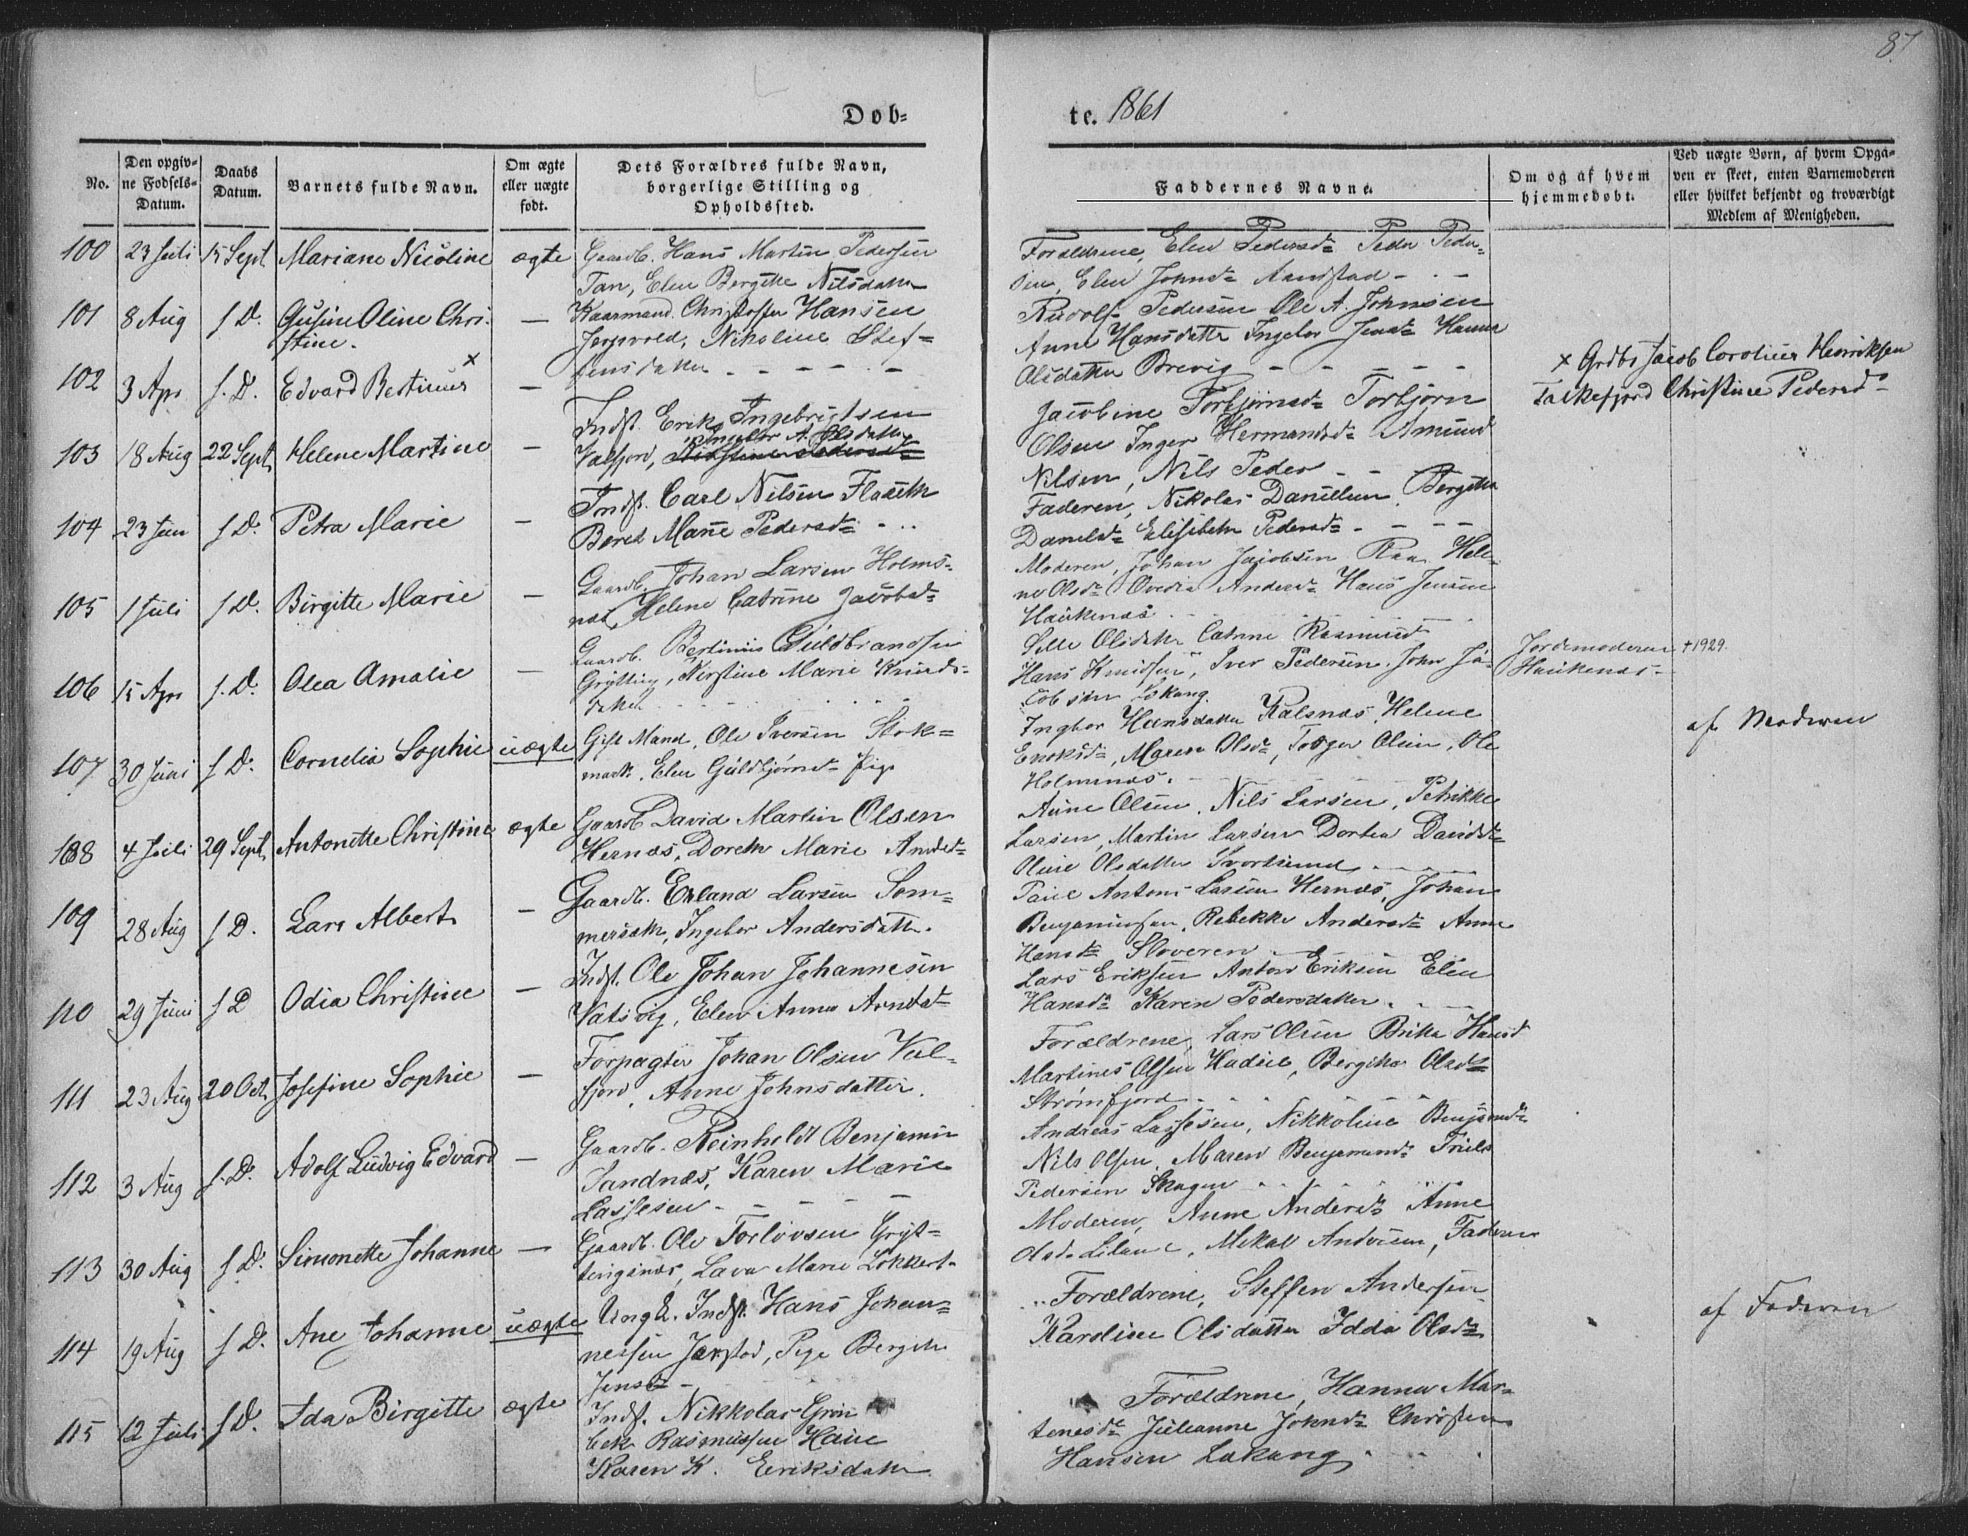 87
Døb-
te. 1861
No.
Den opgiv-
ne Fødsels-
Datum.
Daabs
Datum.
Barnets fulde Navn.
Om ægte
eller uægte
født.
Dets Forældres fulde Navn,
borgerlige Stilling og
Opholdssted.
Faddernes Navne.
Om og af hvem
hjemmedøbt.
Ved uægte Børn, af hvem Opga-
ven er skeet, enten Barnemoderen
eller hvilket bekjendt og troværdigt
Medlem af Menigheden.
100 23 Juli 15 Sept Mariane Nicoline ægte Gaardb. Hans Martin Pedersen
Tan, Elen Bergitte Nilsdatter
Forældrene, Elen Pedersdr Peder Peder-
sen, Elen Johnsdr Aanstad - - -
101 8 Aug s. D. Gusine Oline Chri-
stine. — Kaarmand Christoffer Hansen
Jerpvold, Nikoline Stef-
fensdatter - - - - - -
Rudolf Pedersen Ole A. Johnsen
Anne Hansdatter Ingebor Jensdr Hanna
Olsdatter Brevig - - - - -
102 3 Apr s. D. Edvard Bertinus x — Indst. Erik Ingebrigtsen
Valfjord, Ingebor A. Olsdatter
Jacobine Torbjørnsdr Torbjørn
Olsen Inger Hermandsdr Amund
Nilsen, Nils Peder - -
x Grdbr Jacob Corolius Henriksen
Falkefjord Christine Pedersdr
103 18 Aug 22 Sept Helene Martine — Indst. Carl Nilsen Flaseth
Beret Marie Pedersdr - ..
Faderen, Nikolai Danielsen, Bergitta
Danielsdr Elisabeth Pedersdr - - - -
104 23 Juni s. D. Petra Marie — Gaardb. Johan Larsen Holms-
næs, Helene Catrine Jacobsdr
Moderen, Johan Jacobsen Raa, Hele-
ne Olsdr Ovedia Andersdr Hans Jensen
Haukenæs
105 1 Juli s. D. Birgitte Marie — Gaardb. Bertinius Guldbrandsen
Grytting, Kirstine Marie Knuds-
datter
Sille Olsdatter Catrine Rasmusd
Hans Knudsen, Iver Pedersen, John Ja-
cobsen Lokang.
Jordemoderen
Haukenæs -
+1929.
106 15 Apr s. D. Olea Amalie — Gift Mand, Ole Iversen Stok-
mark, Elen Guldbjørnsdr Pige
Ingbor Hansdatter Kalsnæs, Helene
Eriksdr, Maren Olsdr, Torger Olsen, Ole
Holmnæs.
af Moderen
107 30 Juni s. D. Cornelia Sophie uægte
108 4 Juli 29 Sept Antonette Christine ægte Gaardb David Martin Olsen
Hernæs, Dorethe Marie Andersdr
Anne Olsen, Nils Larsen, Petrikke
Larsen, Martin Larsen Dortea Davidsdr
Oline Olsdatter Svortsund - - - -
109 28 Aug s. D. Lars Albert — Gaardb. Erland Larsen Som-
merseth, Ingebor Andersdatter.
Paul Anton Larsen Hernæs, Johan
Benjaminsen, Rebekke Andersdr Anne
Hansdr Sloveren
110 29 Juni s. D Odia Christine — Indst. Ole Johan Johannesen
Vatsvig, Elen Anna Arntsdr
Lars Eriksen Anton Eriksen Elen
Hansdr Karen Pedersdatter.
111 23 Aug 20 Oct Josefine Sophie — Forpagter Johan Olsen Val-
fjord, Anne Johnsdatter.
Forældrene, Lars Olsen Brita Hansd
Martines Olsen Hadsel, Bergitta Olsdr
Strømfjord
112 3 Aug s. D. Adolf Ludvig Edvard — Gaardb. Reinholdt Benjamin
Sandnæs, Karen Marie
Lassesen - - - -
Andreas Lassesen, Nikkoline Benjamdr
Nils Olsen, Maren Benjamindr Truls
Pedersen Skagen
113 30 Aug s. D. Simonette Johanne — Gaardb. Ole Torlovsen Gryt-
tingsnæs, Lava Marie Lokkert-
Moderen, Anne Andersdr Anne
Olsdr, Mekal Andersen, Faderen
114 19 Aug s. D. Ane Johanne uægte Ungk. Indst. Hans Johan-
nessen Jørstad, Pige Bergitte
Jensdr -
Forældrene, Steffen Andersen
Karoline Olsdatter Idda Olsdr
af Faderen
115 12 Juli s. D. Ida Birgitte ægte Indst. Nikkolai Grøn
bek Rasmussen Haue
Karen K. Eeriksdatter
Forældrene, Hanna Mar-
tinesdr Julianne Johnsdr Christen
Hansen Lokang